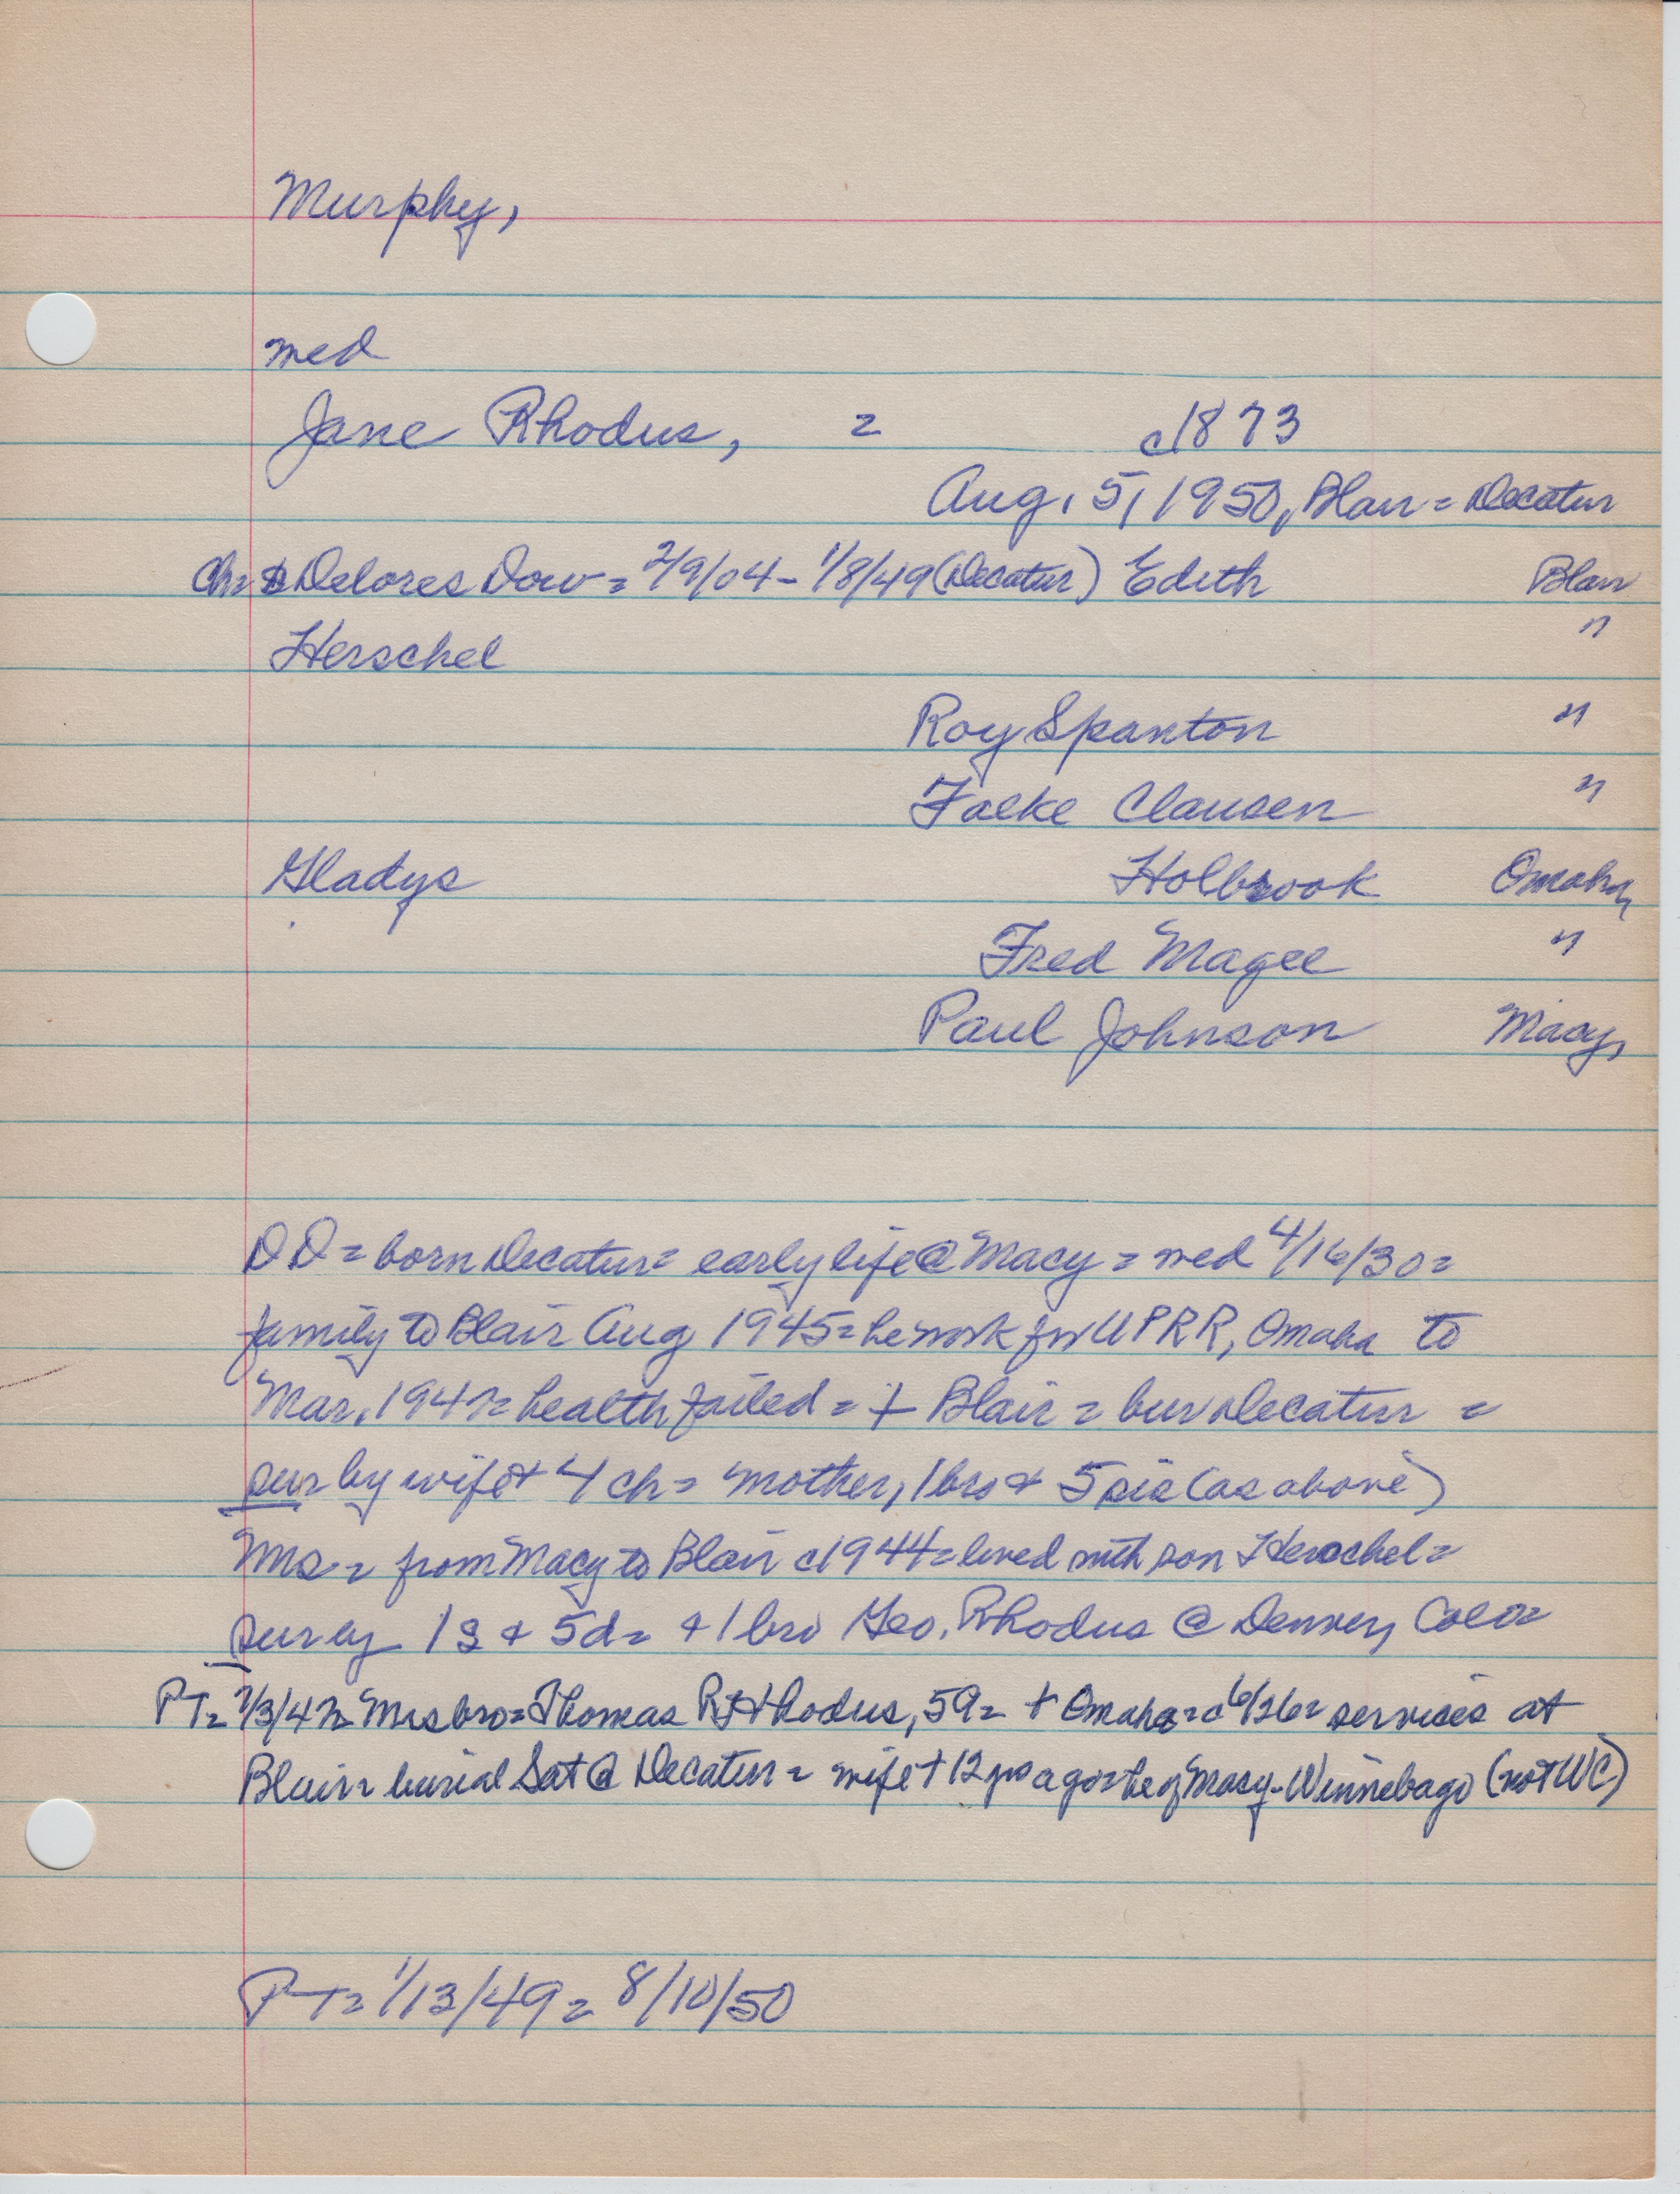 Murphy,
med
Jane Rhodus, = c1873
Aug. 5, 1950, Blair = Decatur
Ch= Delores Dow = 2/9/04 - 1/8/49 (Decatur) Edith Blair
Herschel "
Roy Spanton "
Falke Clausen "
Gladys Holbrook Omaha,
Fred Magee "
Paul Johnson Macy,
DD = born Decatur = early life @ Macy = med 4/16/30 =
family to Blair Aug 1945 = he work for UPRR, Omaha to
Mar. 1947 = health failed = + Blair = bur Decatur =
sur by wife + 4 ch = mother, 1 bro + 5 sis (as above)
Mrs = from Macy to Blair c1944 = lived with son Herschel =
sur by 1 s + 5 d = + 1 bro Geo. Rhodus @ Denver, Colo =
PT = 7/3/47 = Mrs bro = Thomas Rhodus, 59 = + Omaha = c6/26 = services at
Blair = burial Sat @ Decatur = wife + 12 yrs ago = he of Macy - Winnebago (not WC)
PT = 1/13/49 = 8/10/50